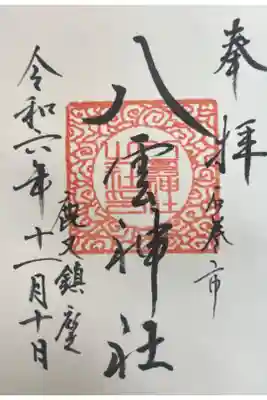 奉拝
石巻市
八雲神社
鹿又鎮座
令和六年十一月十日